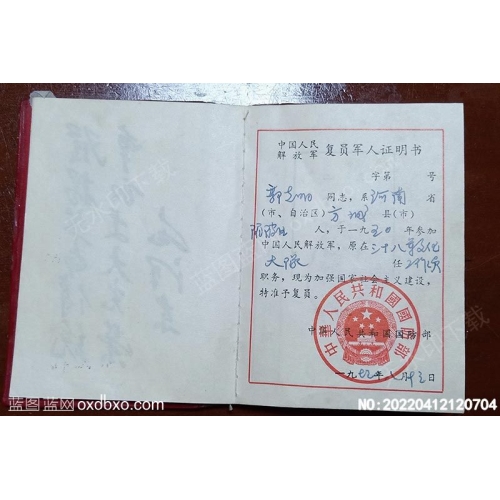 中国人民
解放军 复员军人证明书
字第 号
郭志明 同志，系 河南 省
(市、自治区) 方城 县(市)
人，于一九五〇年参加
中国人民解放军，原在三十八军文化
大队 任 工作员
职务，现为加强国家社会主义建设，
特准予复员。
中华人民共和国国防部
中华人民共和國國防部
一九 年八月 日
蓝图网
蓝图蓝网 oxdbxo.cn
NO:20220412120704